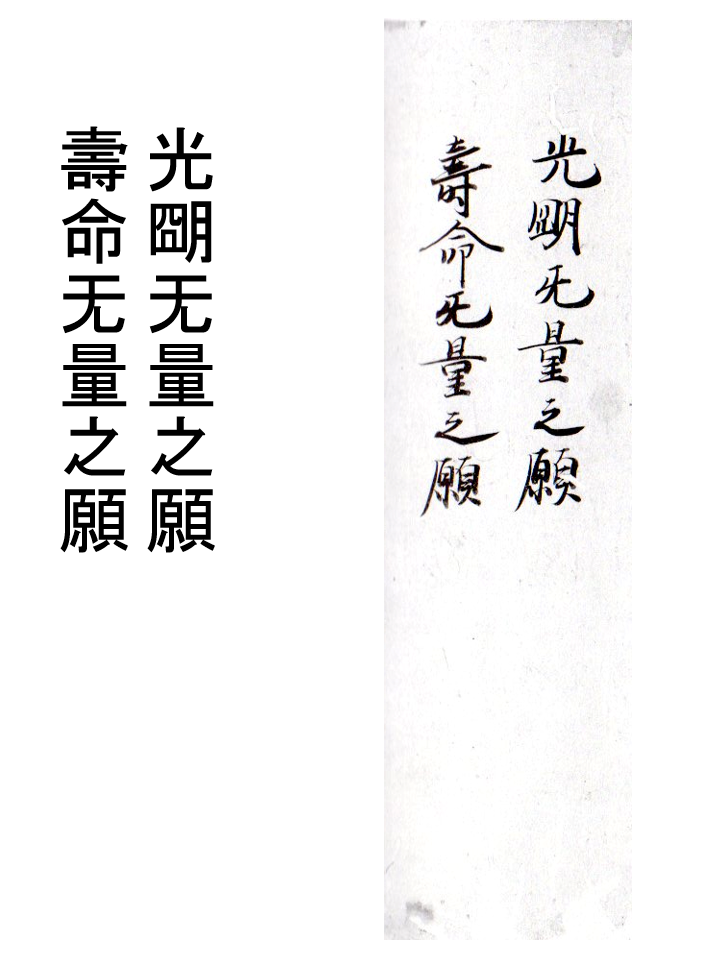 光朙无量之願
壽命无量之願
光朙无量之願
壽命无量之願